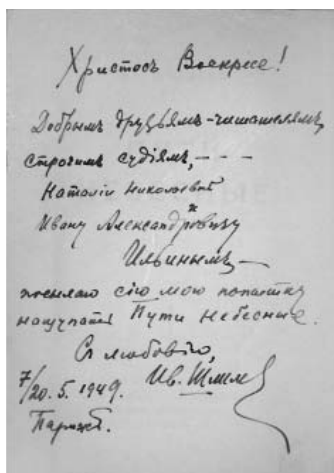 Христосъ Воскресе!
Добрымъ друзьямъ-читателямъ,
строгимъ судіямъ, – – –
Наталіи Николаевнѣ
Ивану Александровичу
Ильинымъ, –
посылаю сію мою попытку
нащупать Пути Небесные.
Съ любовію,
7/20. 5. 1949. Ив. Шмел
Парижъ.